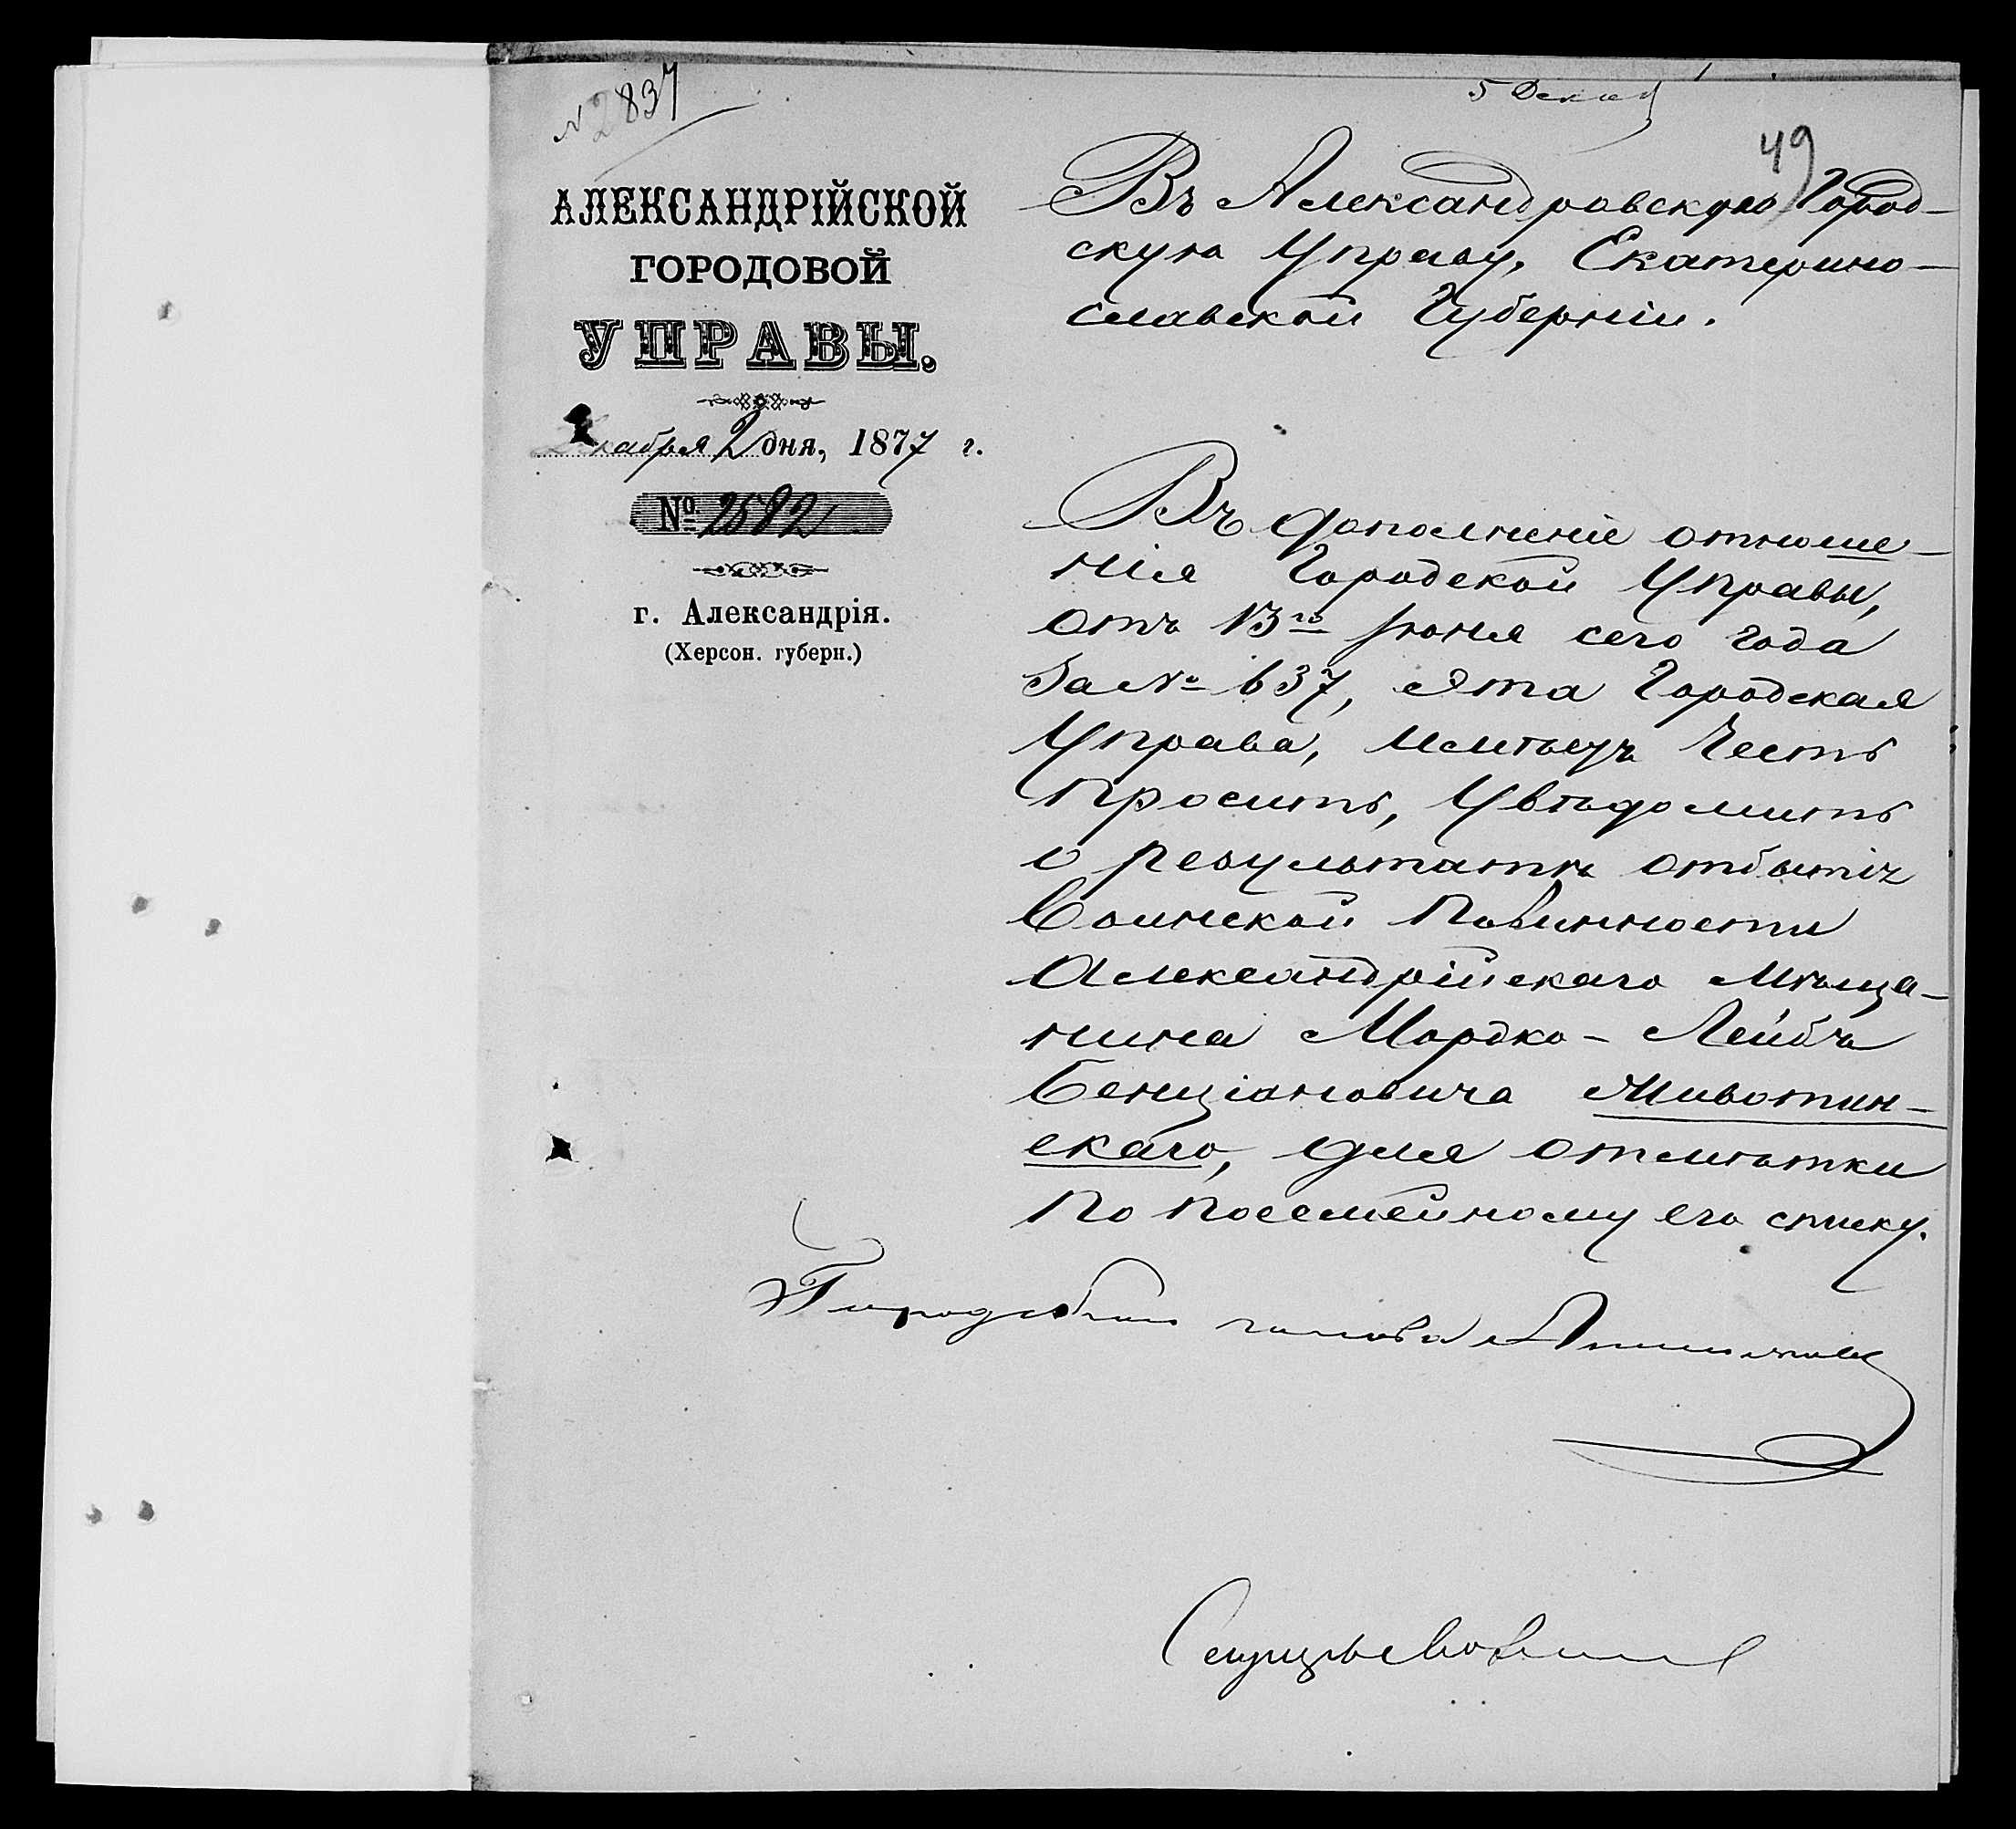 № 2837
5 Декаб
49
АЛЕКСАНДРІЙСКОЙ
ГОРОДОВОЙ
УПРАВЫ.
Декабря 2 дня, 1877 г.
№ 2582
г. Александрія.
(Херсон. губерн.)
Въ Александровскую Город-
скую Управу, Екатерино-
славской Губерніи.
Въ дополненіе отноше-
нія Городской Управы,
отъ 13го Іюня сего года
за № 637, эта Городская
Управа, имѣетъ честь
просить, увѣдомить
о результатѣ отбытія
Воинской Повинности
Александрійскаго Мѣща-
нина Мордко-Лейбъ
Бенціоновича Животин-
скаго, для отмѣтки
по посемейному его списку.
Городской голова
Секретарь